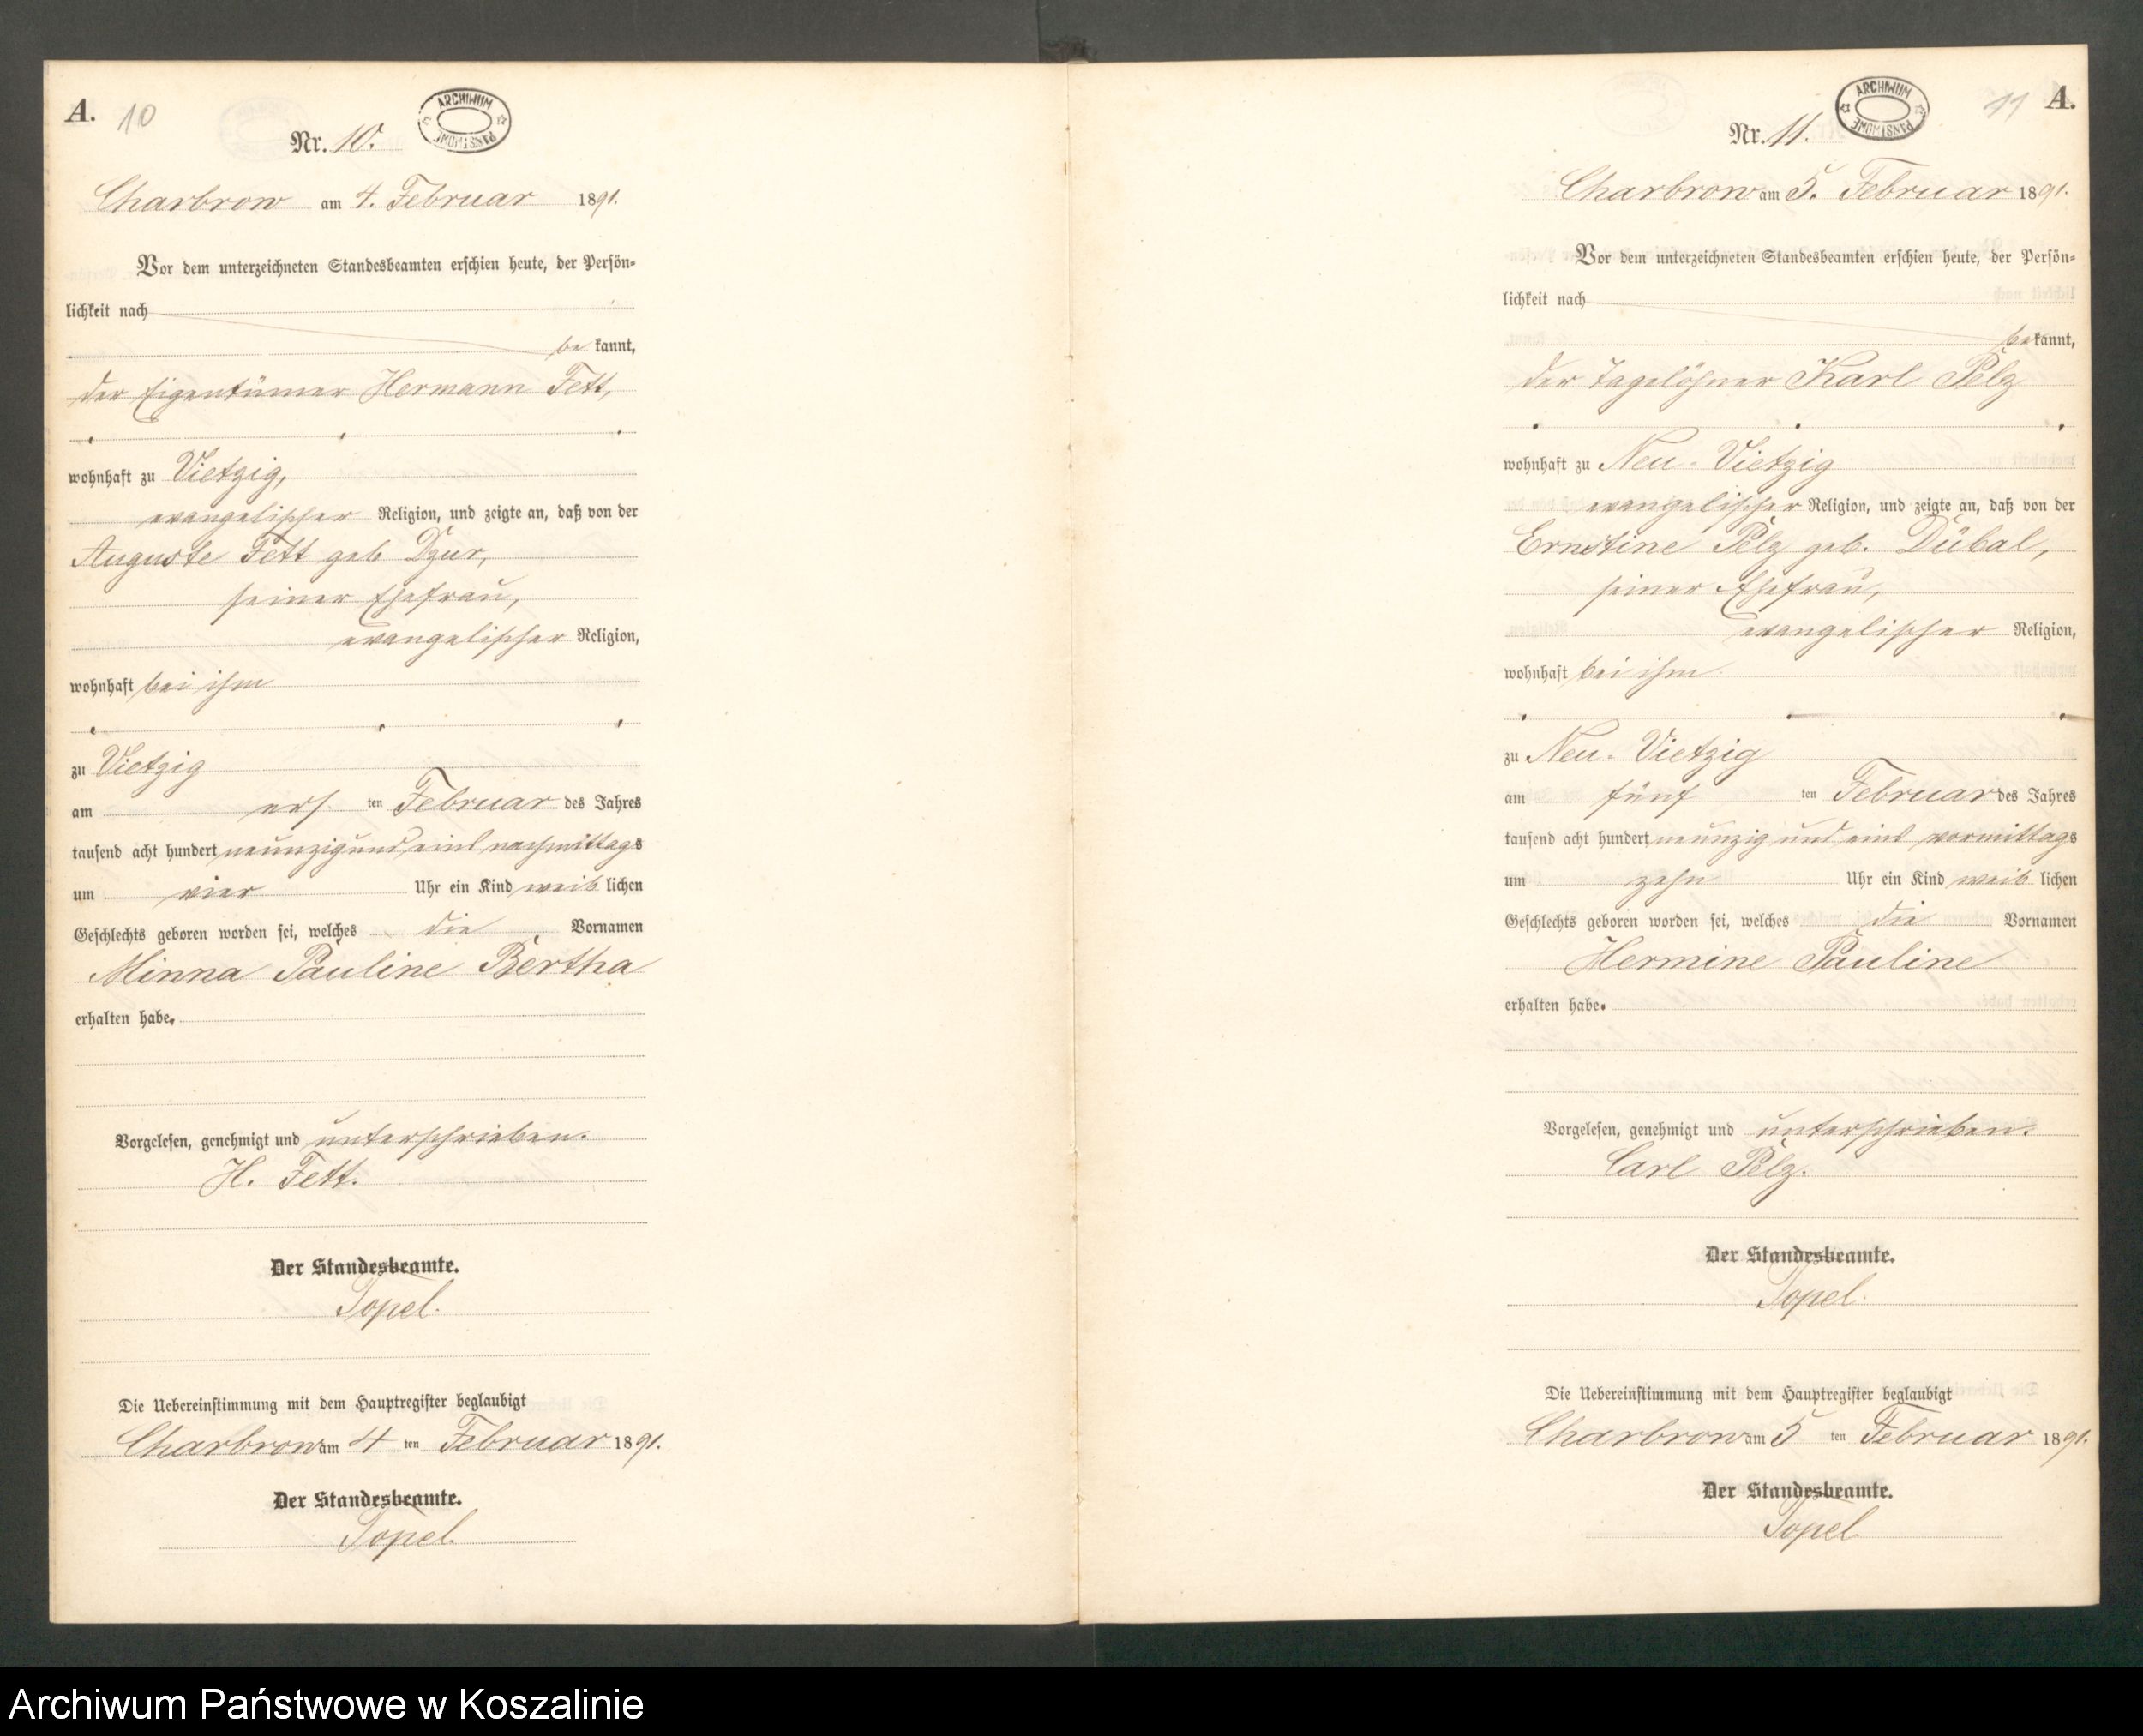 A. 10
ARCHIWUM PAŃSTWOWE
Nr. 10.
Charbrow am 4. Februar 1891.
Vor dem unterzeichneten Standesbeamten erschien heute, der Persön-
lichkeit nach
be kannt,
der Eigentümer Hermann Fett,
wohnhaft zu Vietzig,
evangelischer Religion, und zeigte an, daß von der
Auguste Fett geb Dzur,
seiner Ehefrau,
evangelischer Religion,
wohnhaft bei ihm
zu Vietzig
am ers ten Februar des Jahres
tausend acht hundert neunzig und eins nachmittags
um vier Uhr ein Kind weib lichen
Geschlechts geboren worden sei, welches die Vornamen
Minna Pauline Bertha
erhalten habe.
Vorgelesen, genehmigt und unterschrieben.
H. Fett.
Der Standesbeamte.
Topel.
Die Uebereinstimmung mit dem Hauptregister beglaubigt
Charbrow am 4 ten Februar 1891.
Der Standesbeamte.
Topel.
11 A.
ARCHIWUM PAŃSTWOWE
Nr. 11.
Charbrow am 5. Februar 1891.
Vor dem unterzeichneten Standesbeamten erschien heute, der Persön-
lichkeit nach
be kannt,
der Tagelöhner Karl Pelz
wohnhaft zu Neu-Vietzig
evangelischer Religion, und zeigte an, daß von der
Ernstine Pelz geb. Dübal,
seiner Ehefrau,
evangelischer Religion,
wohnhaft bei ihm
zu Neu-Vietzig
am fünf ten Februar des Jahres
tausend acht hundert neunzig und eins vormittags
um zehn Uhr ein Kind weib lichen
Geschlechts geboren worden sei, welches die Vornamen
Hermine Pauline
erhalten habe.
Vorgelesen, genehmigt und unterschrieben.
Carl Pelz.
Der Standesbeamte.
Topel.
Die Uebereinstimmung mit dem Hauptregister beglaubigt
Charbrow am 5 ten Februar 1891.
Der Standesbeamte.
Topel
Archiwum Państwowe w Koszalinie